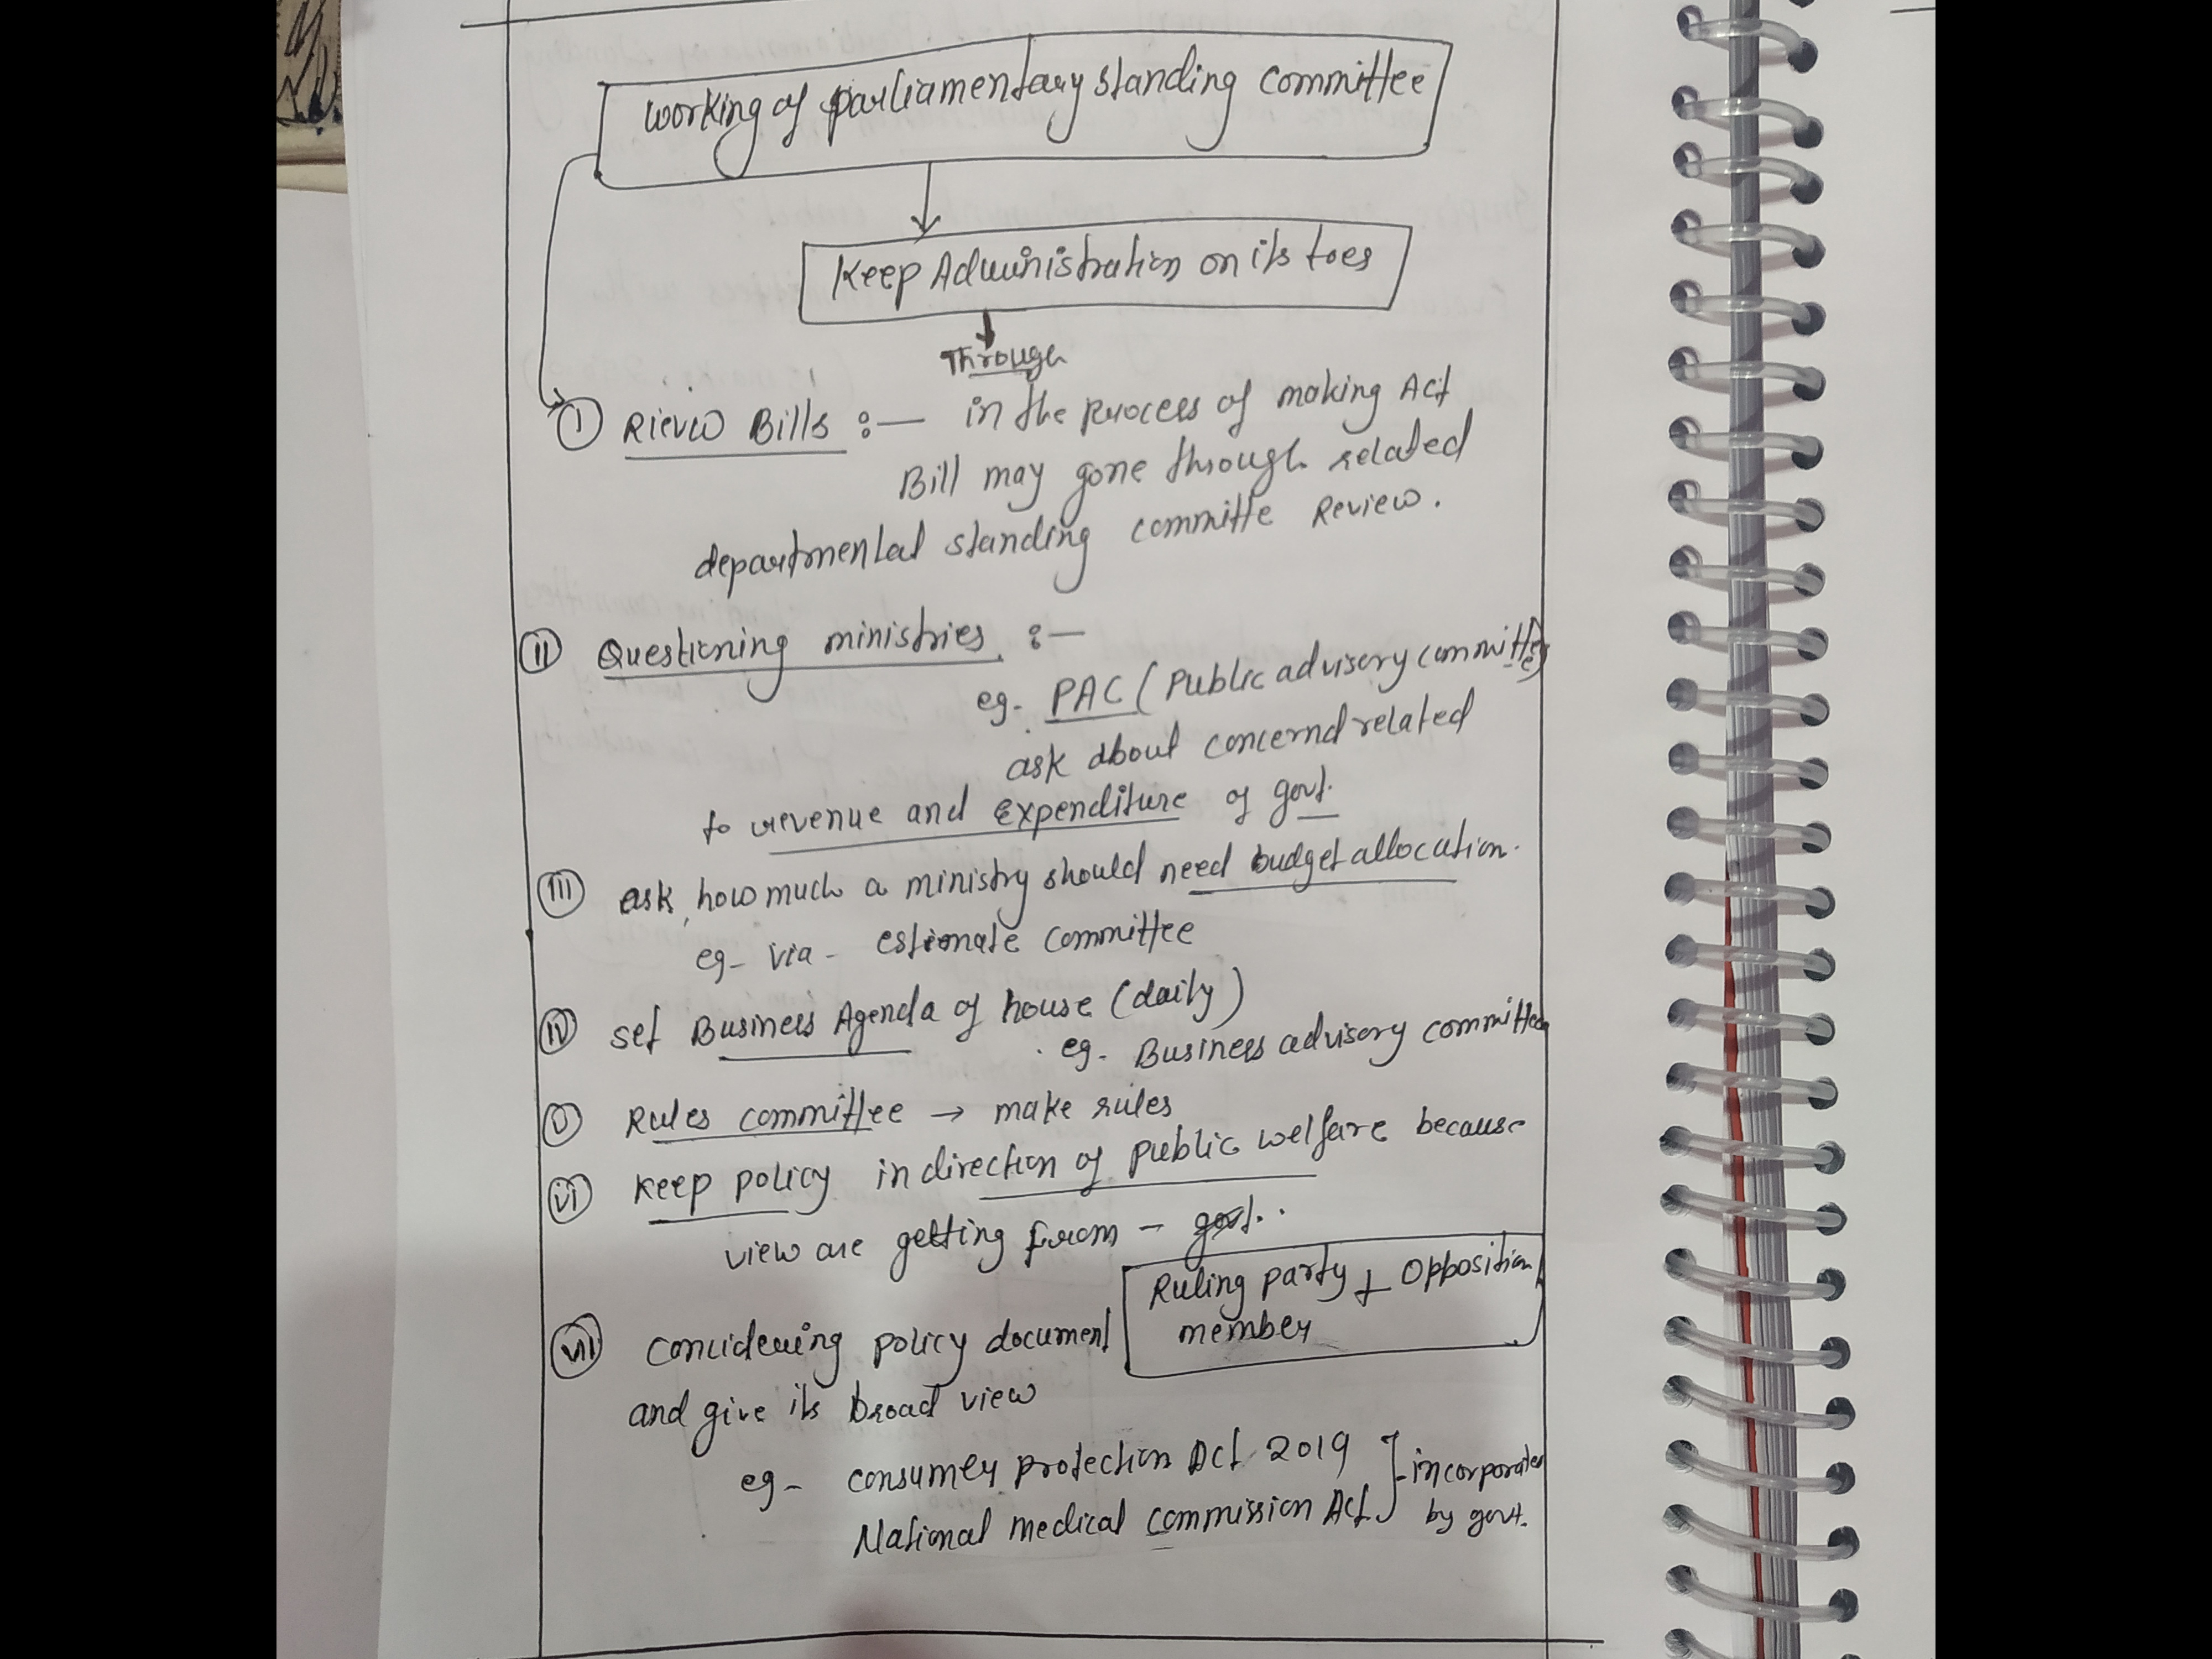 working of parliamentary standing committee
Keep Administration on its toes
Through
i Rievew Bills :— in the process of making Act
Bill may gone through related
departmental standing committe Review.
ii Questioning ministries :—
eg. PAC (Public advisory committee)
ask about concernd related
to revenue and expenditure of govt.
iii ask how much a ministry should need budget allocation.
eg- via - estimate committee
iv set Business Agenda of house (daily)
eg. Business advisory committee
v Rules committee → make rules
vi Keep policy in direction of public welfare because
view are getting from –
Ruling party + Opposition
member
vii Concidering policy document
and give its broad view
eg- consumer protection Act 2019
National medical commission Act
incorporated
by govt.